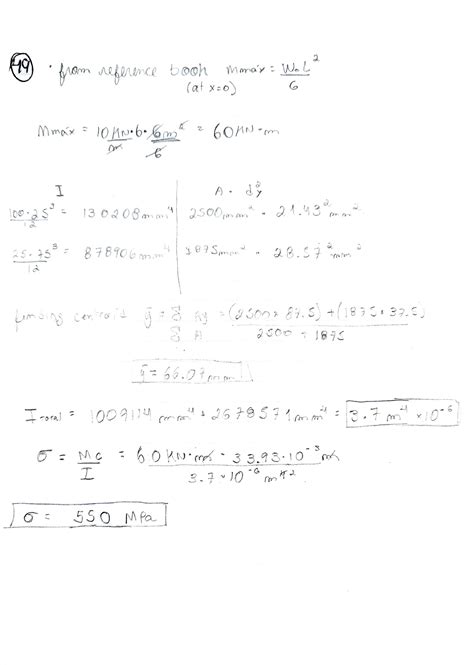 49 · from reference book Mmáx = W₀L² / 6
(at x=0)
Mmáx = 10 KN · 6 · 6m² / m 6 = 60 KN·m
I A · dy²
100·25³ / 12 = 130208mm⁴ 2500mm² · 21.43² mm²
25·75³ / 12 = 878906mm⁴ 1875mm² · 28.57² mm²
finding centroid ȳ = Σ Ay / Σ A = (2500 · 87.5) + (1875 · 37.5) / 2500 + 1875
ȳ = 66.07 mm
I = 1009114 mm⁴ + 2678571 mm⁴ = 3.7 m⁴ × 10⁻⁶
σ = Mc / I = 60 KN·m · 33.93·10⁻³ m / 3.7 × 10⁻⁶ m
σ = 550 MPa